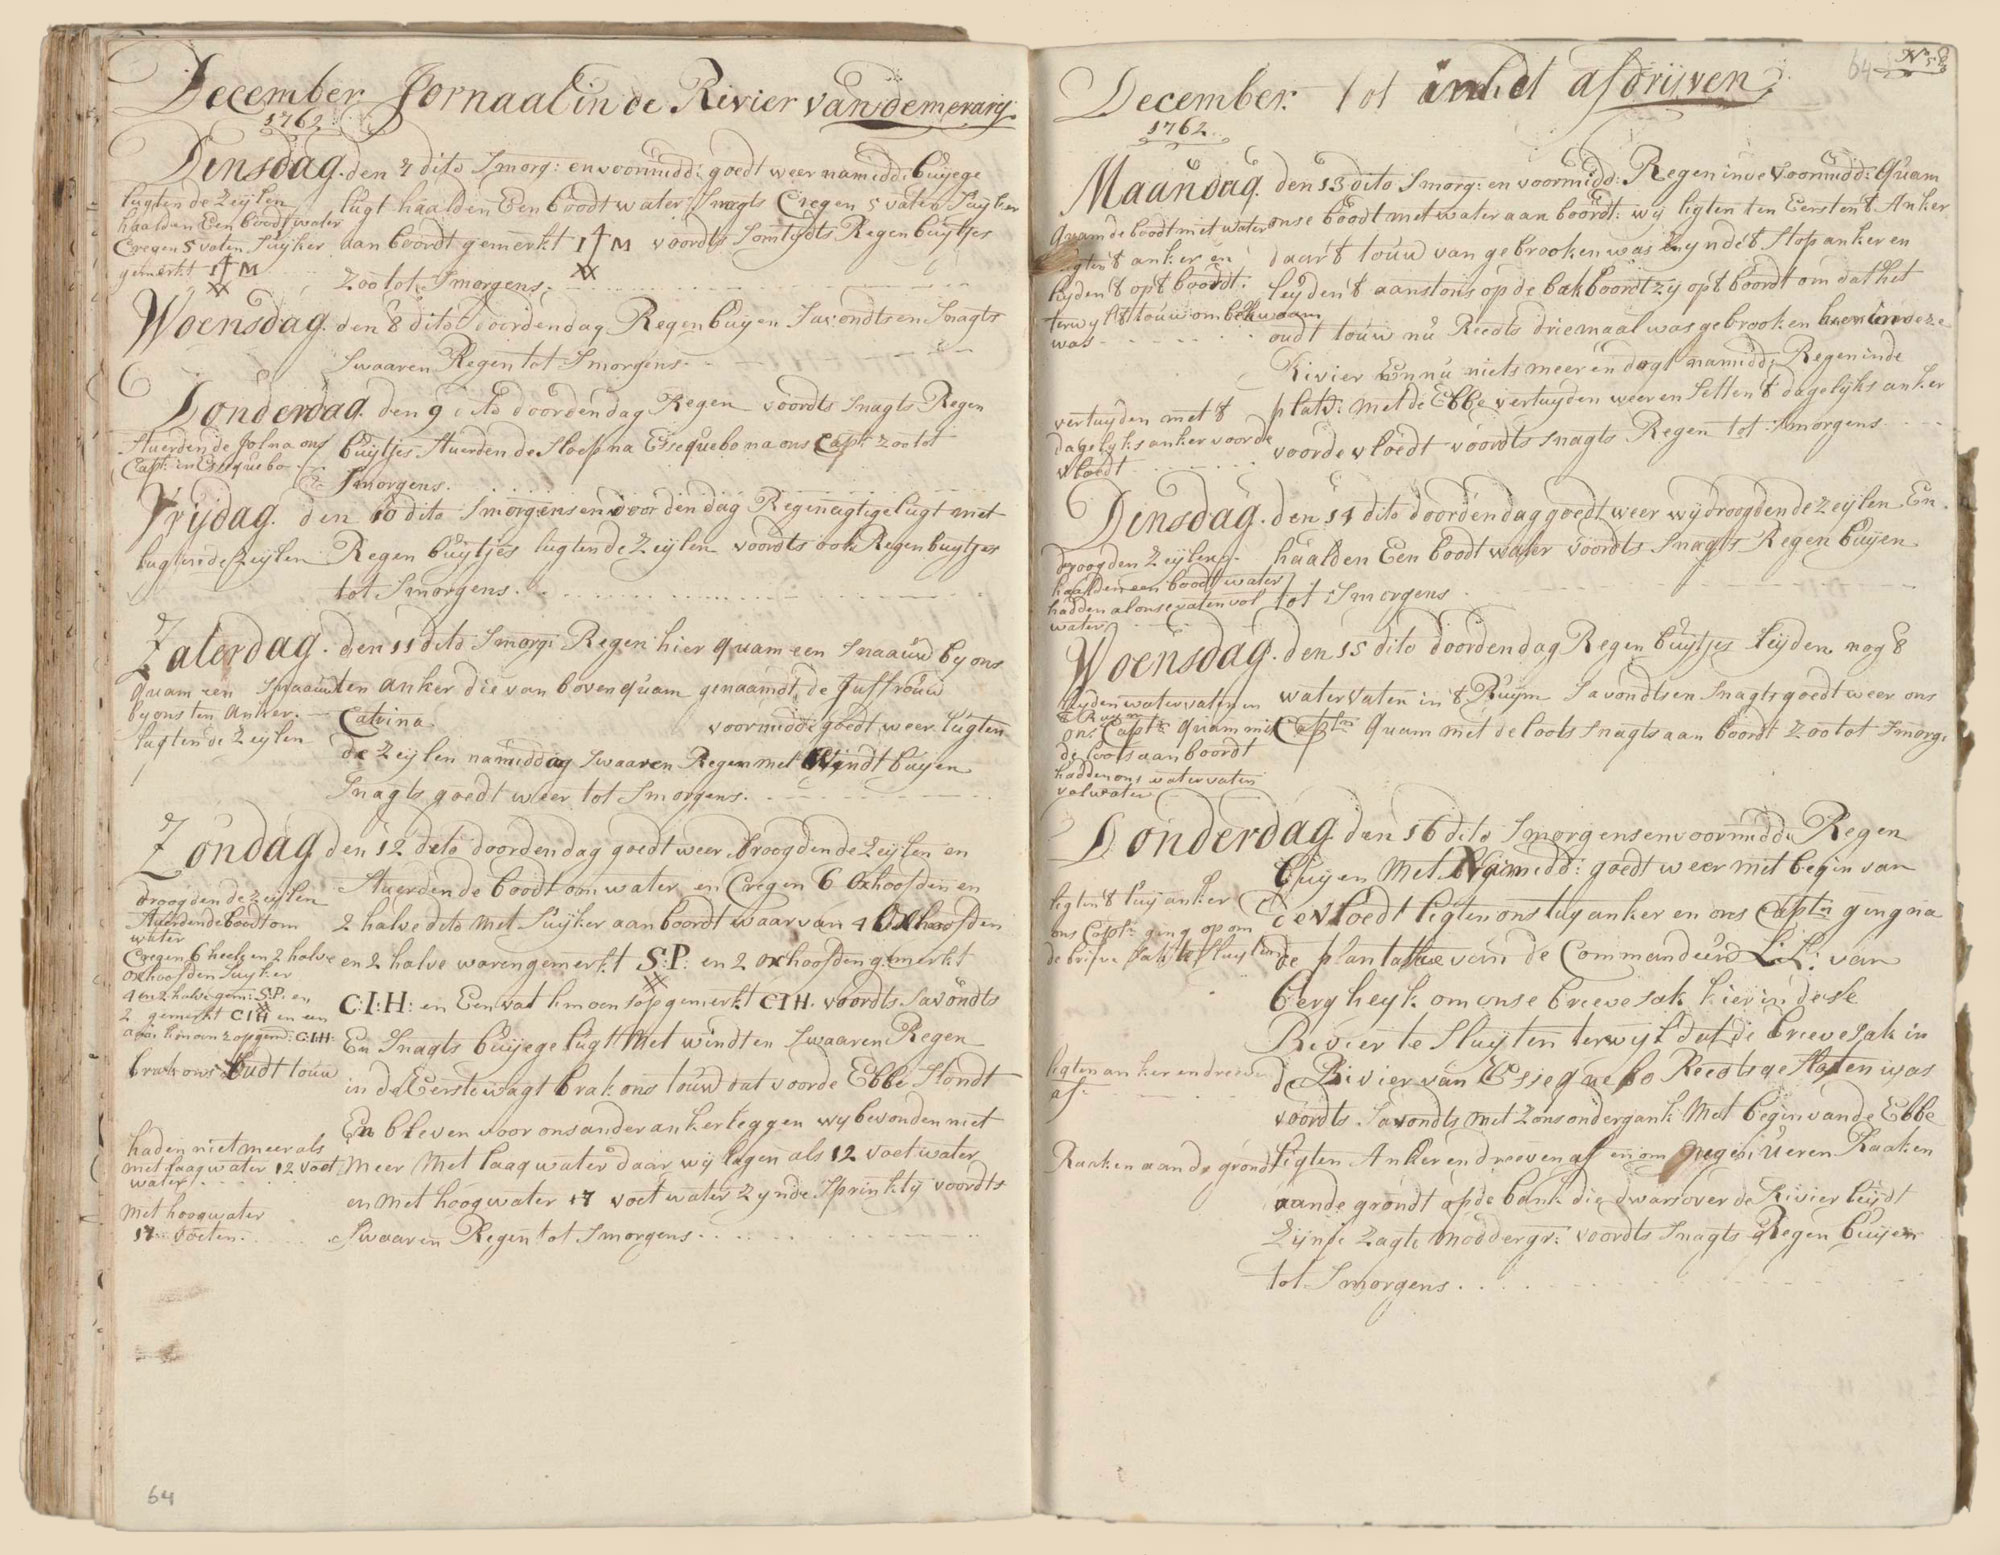 December Jornaal in de Rivier van demerarij
1762
Dinsdag. den 7 dito Smorg: en voormidd: goedt weer namidd: buijege
lugt haalden Een boodt water Snagts Cregen 5 vaten Suijker
aan boordt gemerkt I M voordts Somtydts Regen buijtjes
zoo tot Smorgens.
lugten de Zeijlen
haalden Een boodt water
Cregen 5 vaten Suijker
gemerkt I M
Woensdag. den 8 dito doordendag Regen buijen Savondts en Snagts
Swaaren Regen tot Smorgens.
Donderdag. den 9 dito doordendag Regen voordts Snagts Regen
buijtjes stuerden de Sloep na Essequebo na ons Capt: zoo tot
Smorgens.
stuerden de Jol na ons
Capt: in Essequebo
Vrijdag. den 10 dito Smorgens en door den dag Regenagtige lugt met
Regen buijtjes lugten de Zeijlen voordts ook Regen buijtjes
tot Smorgens.
lugten de Zeijlen
Zaterdag. den 11 dito Smorg: Regen hier quam een Snaauw by ons
ten anker die van boven quam genaamdt de Juffrouw
Catrina voormidd: goedt weer lugten
de Zeijlen namiddag Swaaren Regen met Windt buijen
Snagts goedt weer tot Smorgens.
quam een Snaauw
by ons ten anker.
lugten de Zeijlen
Zondag den 12 dito doordendag goedt weer droogden de Zeijlen en
stuerden de boodt om water en Cregen 6 Oxhoofden en
2 halve dito met Suijker aan boordt waar van 4 Oxhoofden
en 2 halve waren gemerkt S:P: en 2 oxhoofden gemerkt
C:I:H: en Een vat limoen sop gemerkt CIH. voordts Savondts
En Snagts buijege lugt Met windt en Swaaren Regen
in de Eerste wagt brak ons touw dat voor de Ebbe stondt
En bleven voor ons ander anker leggen wy bevonden niet
meer Met laag water daar wij lagen als 12 voet water
en Met hoog water 17 voet water zynde Sprinktij voordts
Swaaren Regen tot Smorgens.
droogden de Zeijlen
stuerden de boodt om
water
Cregen 6 heele en 2 halve
oxhoofden Suijker
4 en 2 halve gem: S:P: en
2 gemerkt CIH en een
brak ons oudt touw
haden niet meer als
met laag water 12 voet
water
Met hoog water
17 voeten.
64
December. tot in het afdrijven
1762
64
No 58
Maandag. den 13 dito Smorg: en voormidd: Regen in de voormidd: quam
onse boodt met water aan boordt: wij ligten ten Eersten 't Anker
daar 't touw van gebrooken was zynde 't stop anker en
leijden 't aanstons op de bakboordt zij op 't boordt om dat het
oudt touw nu Reedts driemaal was gebrooken hier in deze
Rivier en nu niets meer en dogt namidd: Regen in de
plats: met de Ebbe vertuyden weer en Setten 't dagelijks anker
voor de vloedt voordts snagts Regen tot Smorgens
quam de boodt met water
ligten 't anker en
leijden 't op 't boordt.
terwyl 't touw onbekwaam
was
vertuyden met 't
dagelyks anker voor de
vloedt
Dinsdag. den 14 dito doordendag goedt weer wij droogden de Zeijlen En
haalden Een boodt water voordts Snagts Regen buijen
tot Smorgens
droogden Zeijlen
haalden een boodt water
hadden al onse vaten vol
water
Woensdag. den 15 dito doordendag Regen buijtjes leijden nog 8
water vaten in 't Ruijm Savondts en Snagts goedt weer ons
Captn quam met de loots Snagts aan boordt zoo tot Smorg:
leijden water vaten in
't Ruym
ons Captn quam met
de loots aan boordt
hadden ons water vaten
vol water
Donderdag den 16 dito Smorgens en voormidd: Regen
buijen Met Namidd: goedt weer met begin van
de vloedt ligten ons tuy anker en ons Captn ging na
de plantatie van de Commandeur L:L: van
bergheyk om onse brieve sak hier in dese
Rivier te Sluyten terwijl dat de brieve sak in
de Rivier van Essequebo Reedts gesloten was
voordts Savondts met zons ondergank Met begin van de Ebbe
ligten Anker en dreeven af en om negen ueren Raaken
aan de grondt op de bank die dwars over de Rivier leijdt
zijnde zagte moddergr: voordts Snagts Regen buijen
tot Smorgens
ligten 't tuy anker
ons Captn ging op om
de brieve sak te sluyten
ligten anker en dreeven
af.
Raaken aan de grondt